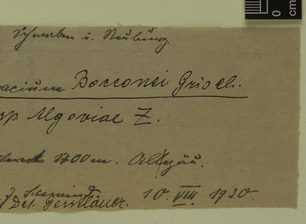 Schwaben u. Neuburg.
acium Bocconei Griseb.
sp. Algoviae Z.
1700 m. Allgäu.
Det. Gerstlauer. 10 VIII 1930
0
cm